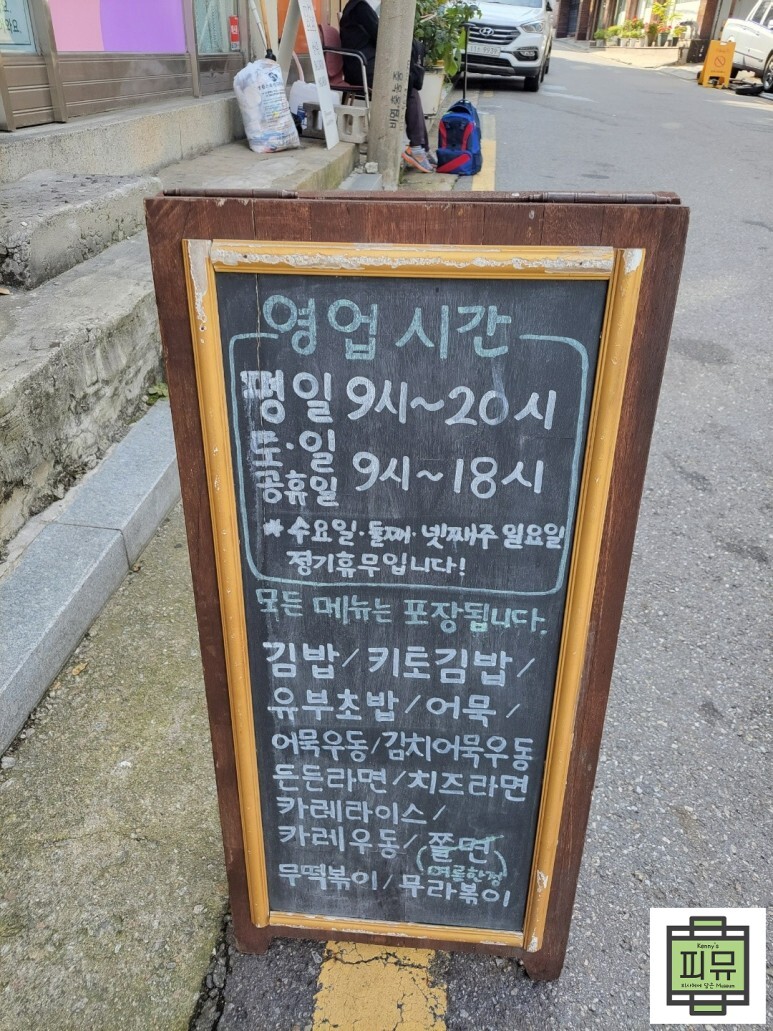 영업 시간
평일 9시~20시
토·일
공휴일 9시~18시
* 수요일·둘째·넷째주 일요일
정기휴무입니다!
모든 메뉴는 포장됩니다.
김밥/키토김밥/
유부초밥/어묵/
어묵우동/김치어묵우동
든든라면/치즈라면
카레라이스/
카레우동/쫄면
(여름한정)
무떡볶이/무라볶이
Kenny's
피뮤